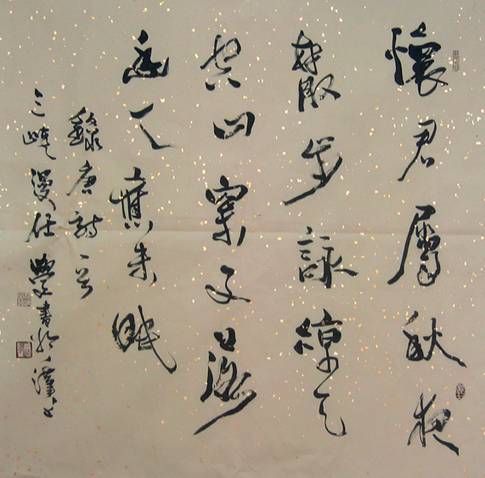 懷君屬秋夜
散步詠涼天
空山松子落
幽人應未眠
錄唐詩一首
三峽漫仕書於漢上